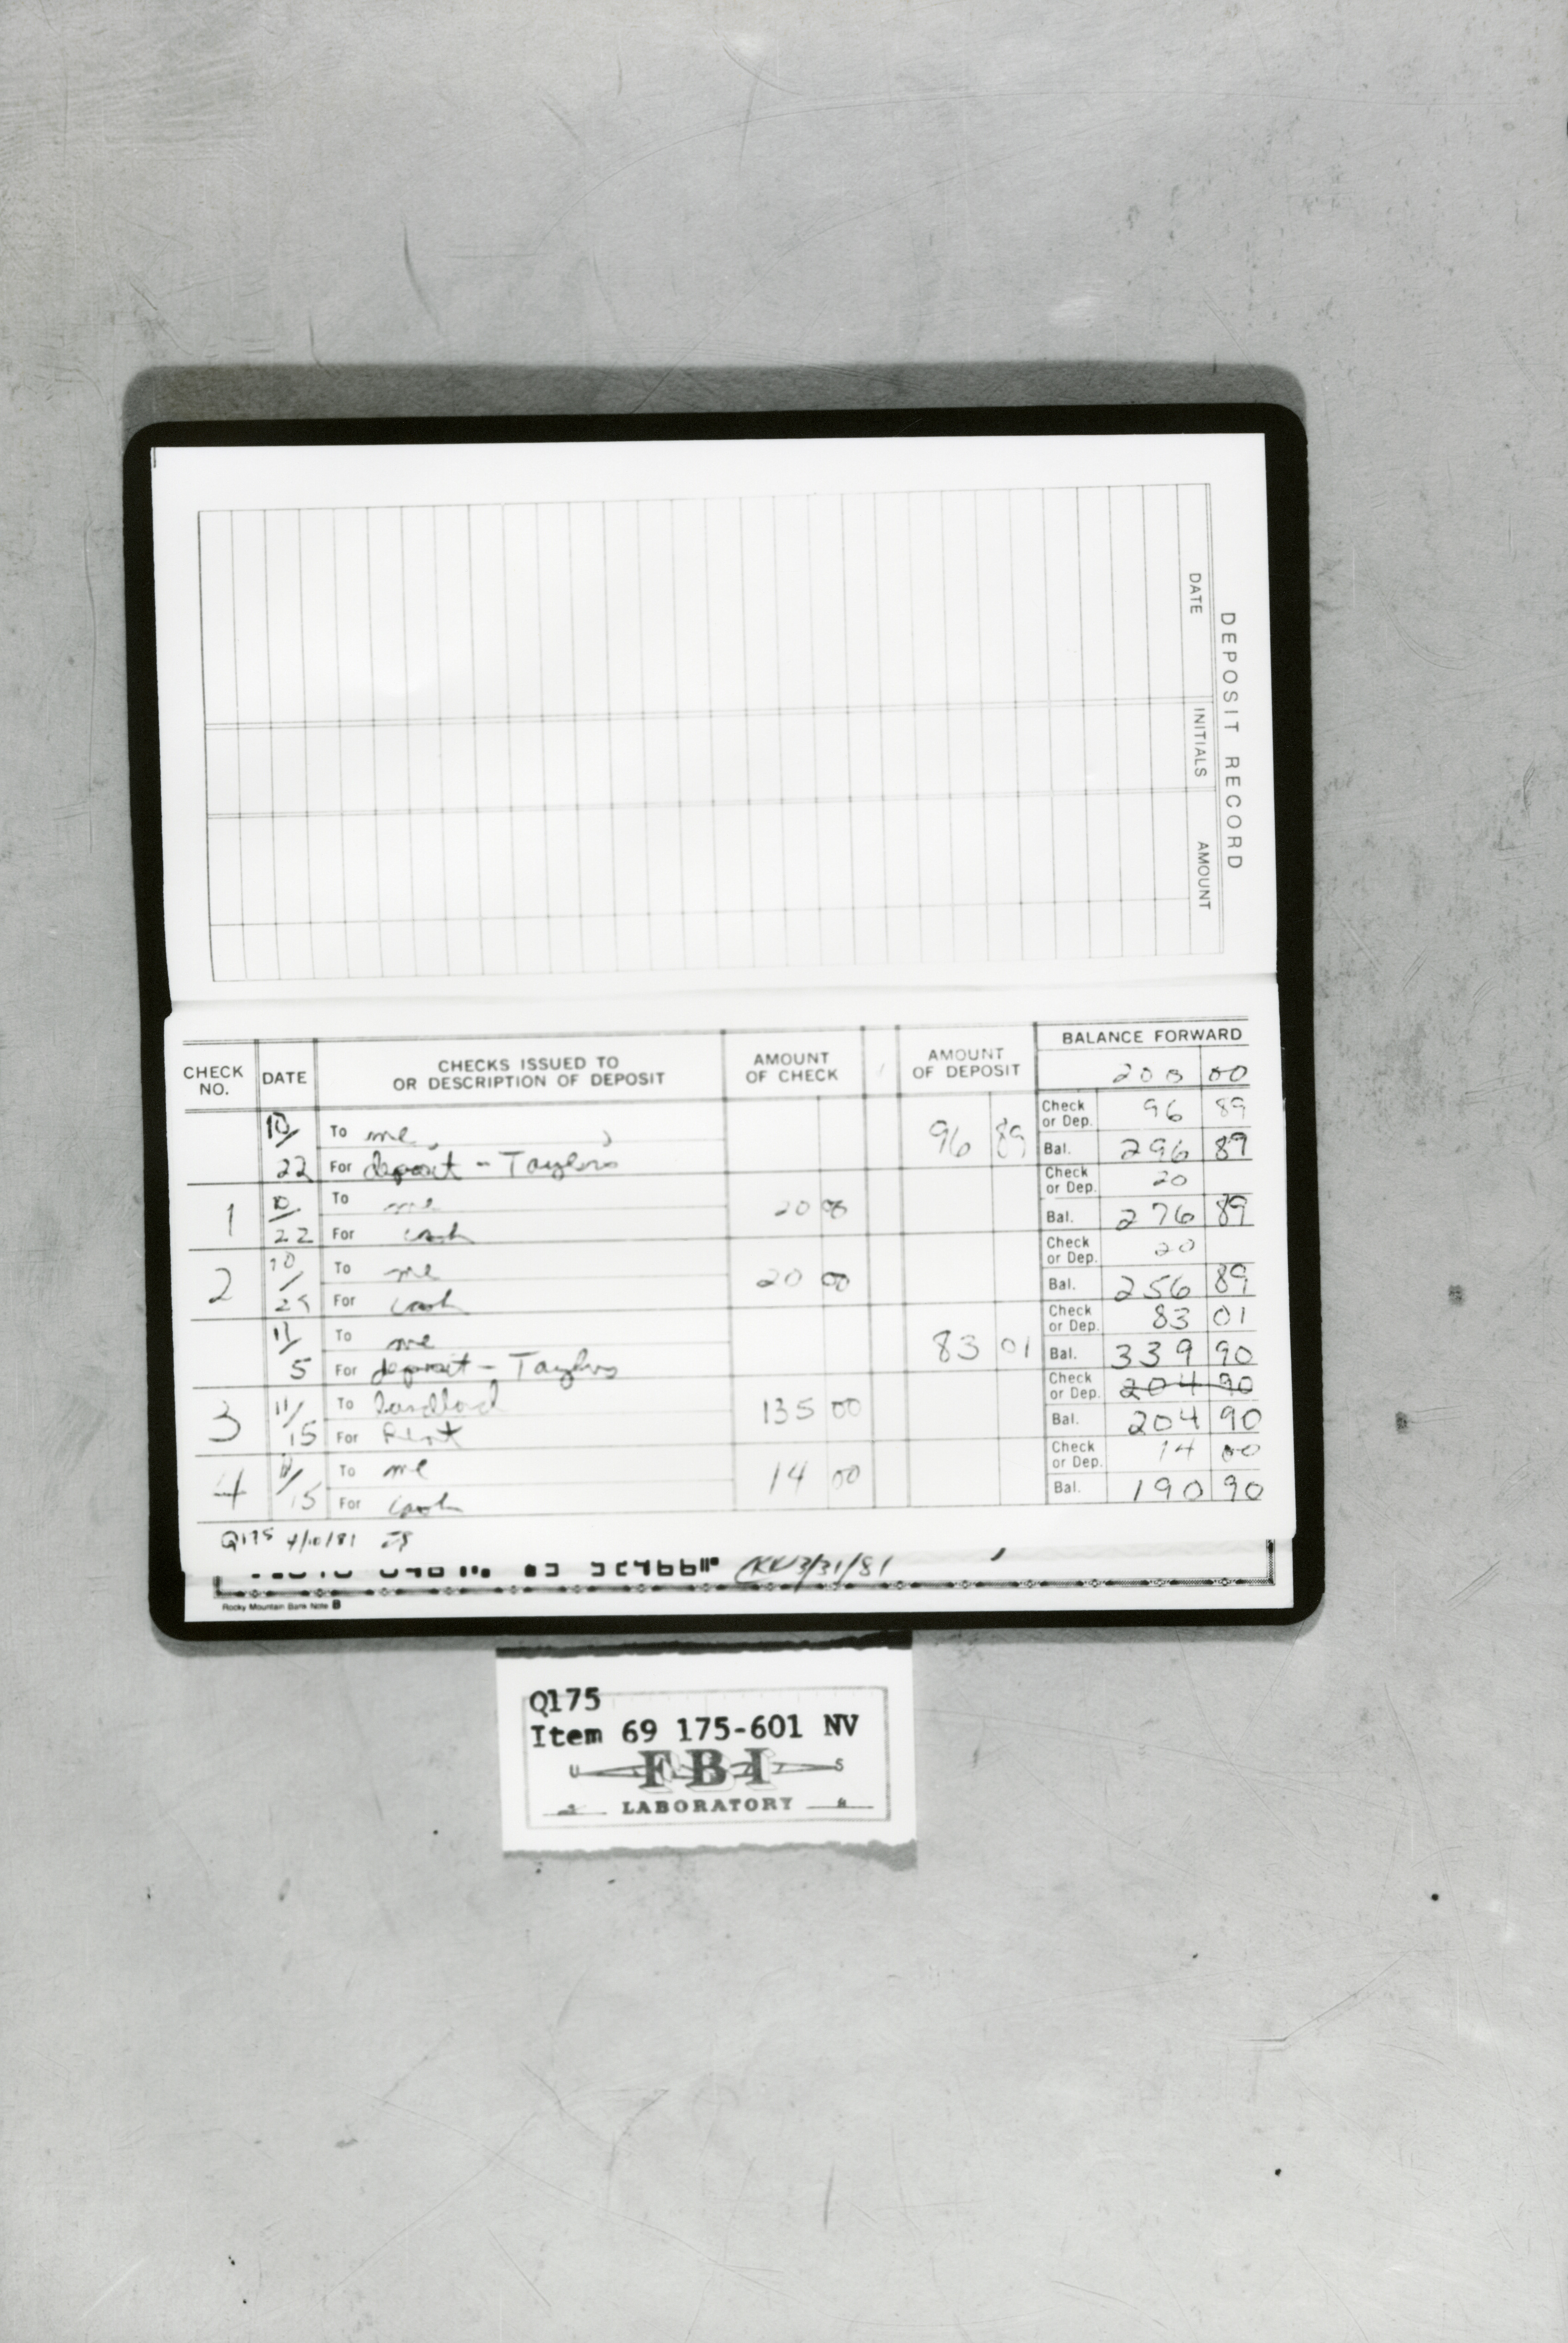 DEPOSIT RECORD
DATE INITIALS AMOUNT
CHECK NO. DATE CHECKS ISSUED TO OR DESCRIPTION OF DEPOSIT AMOUNT OF CHECK AMOUNT OF DEPOSIT BALANCE FORWARD
200 00
10/22 To me, 96 89 Check or Dep. 96 89
For deposit - Taylors Bal. 296 89
1 10/22 To me 20 00 Check or Dep. 20
For cash Bal. 276 89
2 10/29 To me 20 00 Check or Dep. 20
For cash Bal. 256 89
11/5 To me 83 01 Check or Dep. 83 01
For deposit - Taylors Bal. 339 90
3 11/15 To Landlord 135 00 Check or Dep. 204 90
For Rent Bal. 204 90
4 11/15 To me 14 00 Check or Dep. 14 00
For cash Bal. 190 90
Q175 4/10/81
3/31/81
Rocky Mountain Bank Note B
Q175
Item 69 175-601 NV
U FBI S
LABORATORY